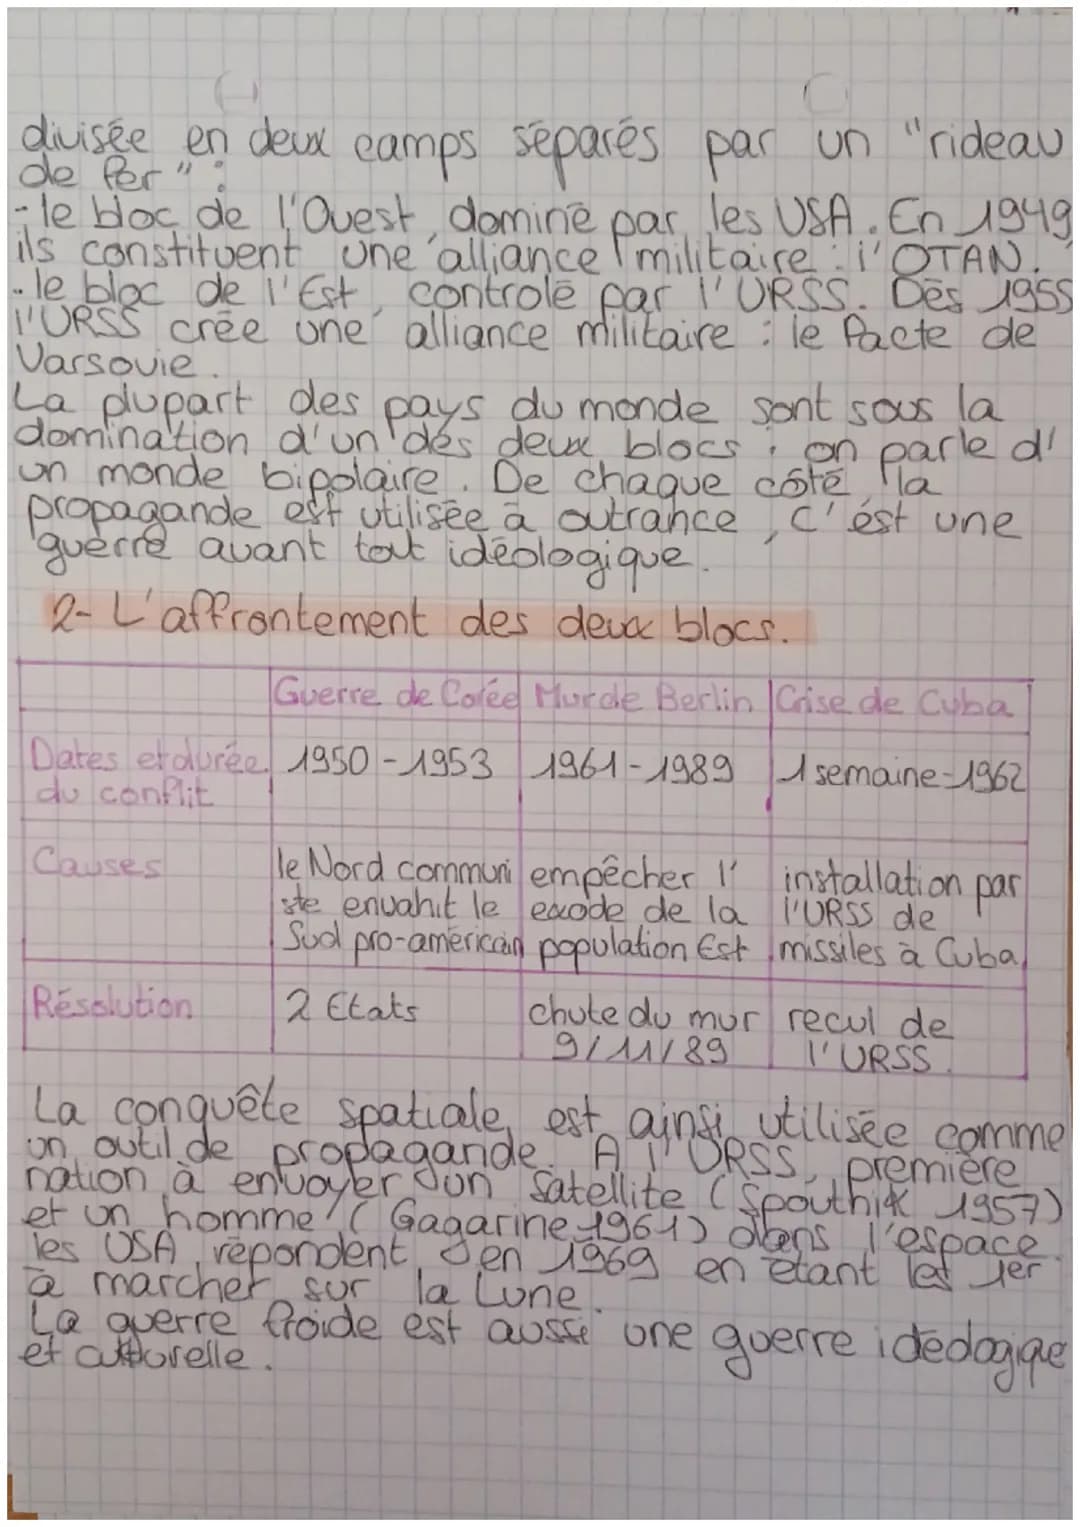 divisée en deux camps séparés par un "rideau
de fer" :
- le bloc de l'Ouest, dominé par les USA. En 1949,
ils constituent une alliance militaire : l'OTAN.
- le bloc de l'Est, controlé par l'URSS. Dès 1955
l'URSS crée une alliance militaire : le Pacte de
Varsovie.
La plupart des pays du monde sont sous la
domination d'un des deux blocs : on parle d'
un monde bipolaire. De chaque côté, la
propagande est utilisée à outrance, c'est une
guerre avant tout idéologique.
2- L'affrontement des deux blocs.
Guerre de Corée Mur de Berlin Crise de Cuba
Dates et durée 1950-1953 1961-1989 1 semaine-1962
du conflit
Causes le Nord communi empêcher l' installation par
ste envahit le exode de la l'URSS de
Sud pro-américain population Est missiles à Cuba
Résolution 2 Etats chute du mur recul de
9/11/89 l'URSS.
La conquête spatiale est ainsi utilisée comme
un outil de propagande. A l'URSS, première
nation à envoyer un satellite (Spouthik 1957)
et un homme (Gagarine 1961) dans l'espace.
les USA répondent en 1969 en étant les 1er
à marcher sur la Lune.
La guerre froide est aussi une guerre idéologique
et culturelle.